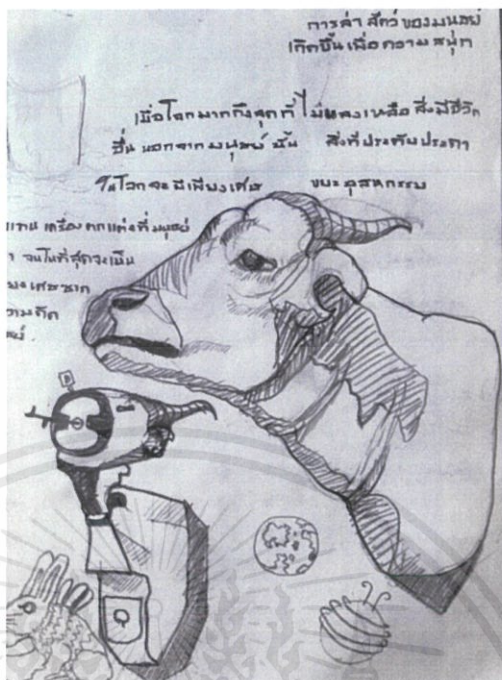 การล่า สัตว์ ของมนุษย์
เกิดขึ้น เพื่อ ความ สนุก
เมื่อโลกมาถึงจุดที่ ไม่หลงเหลือ สิ่งมีชีวิต
อื่น นอกจาก มนุษย์ นั้น สิ่งที่ประดับประดา
ในโลกจะมีเพียงเศษ ขยะอุตสาหกรรม
แทน เครื่องตกแต่งที่มนุษย์
จนในที่สุดจะเป็น
เศษซาก
ความคิด